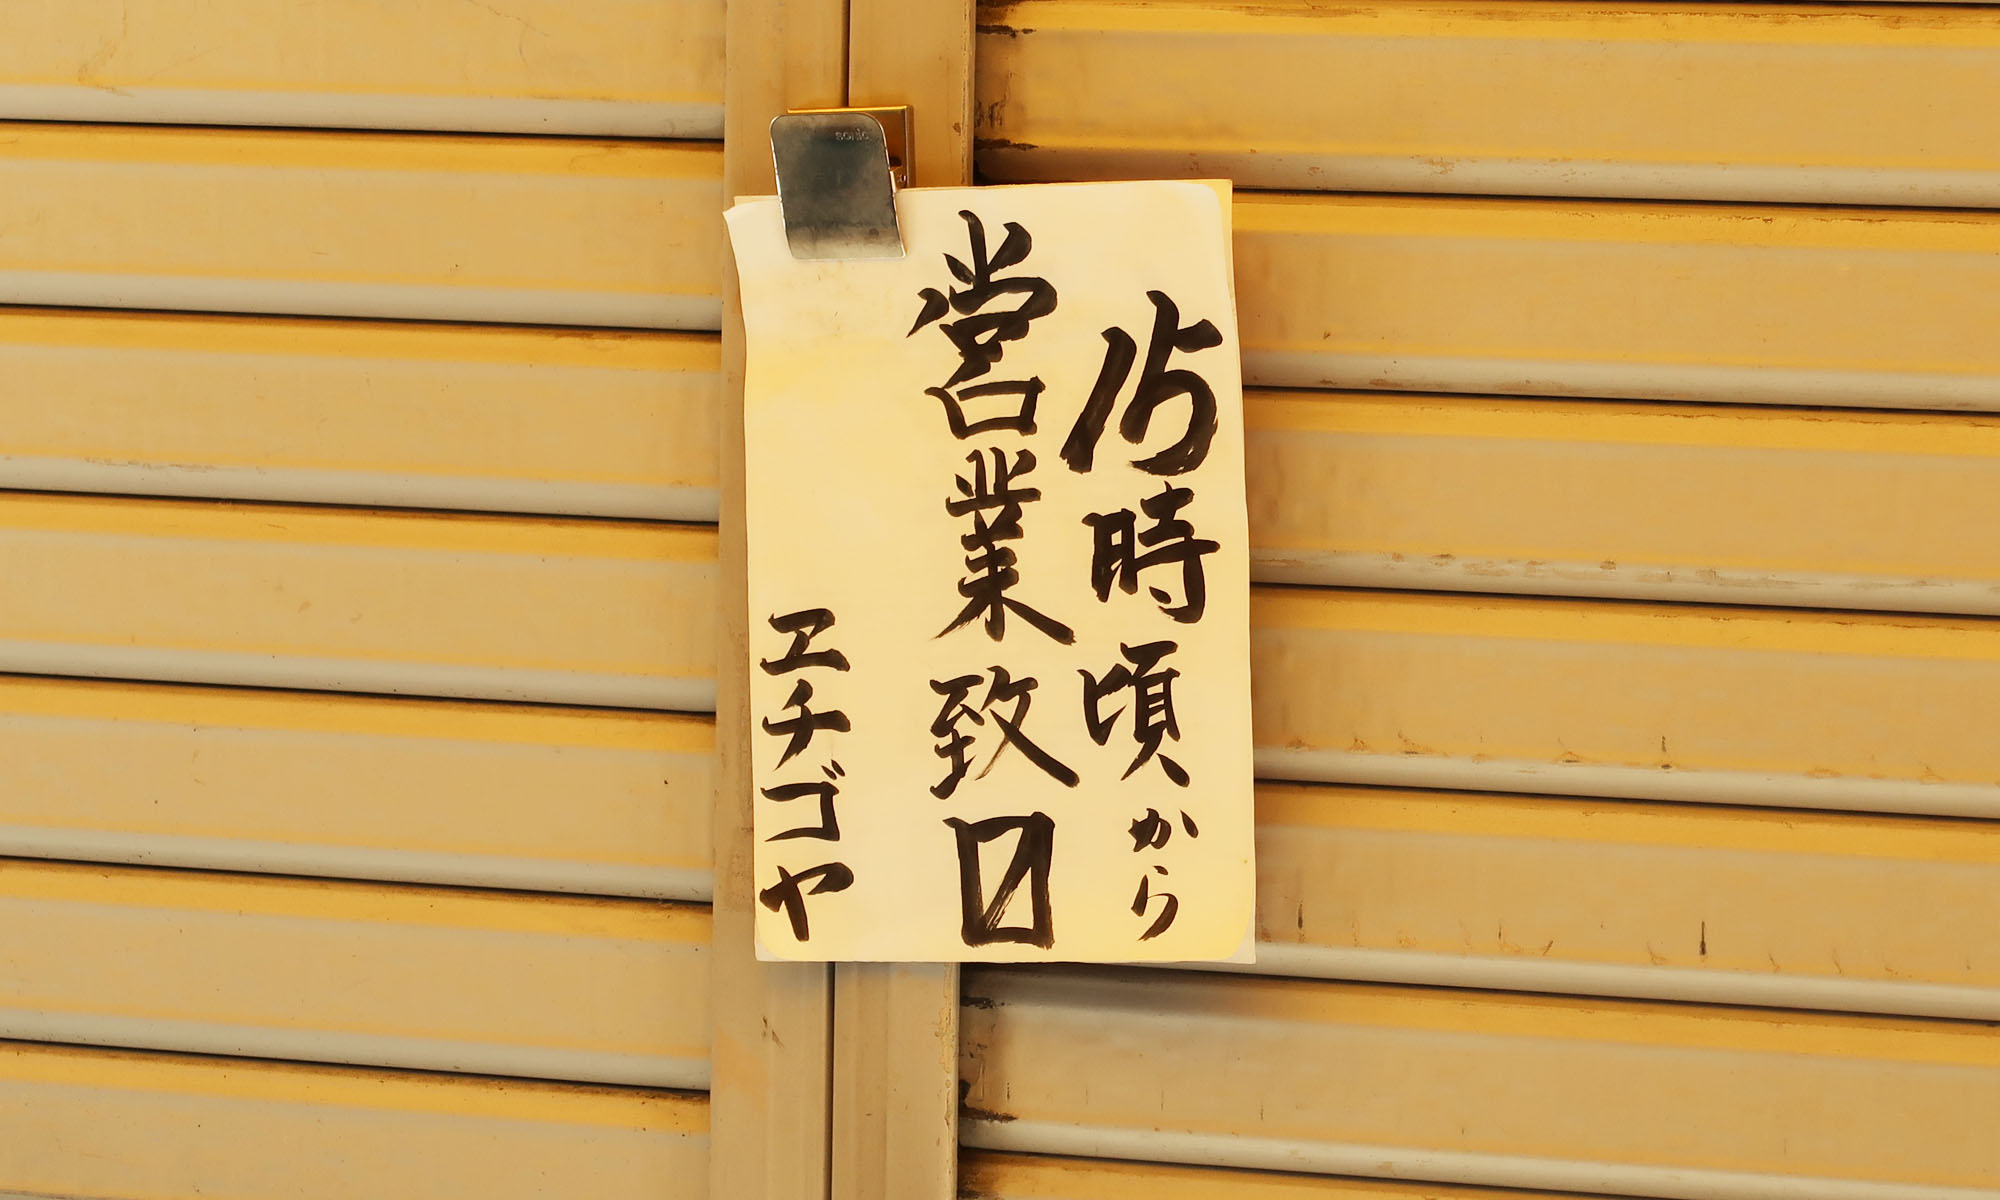 15時頃から
営業致〼
ヱチゴヤ
sonic